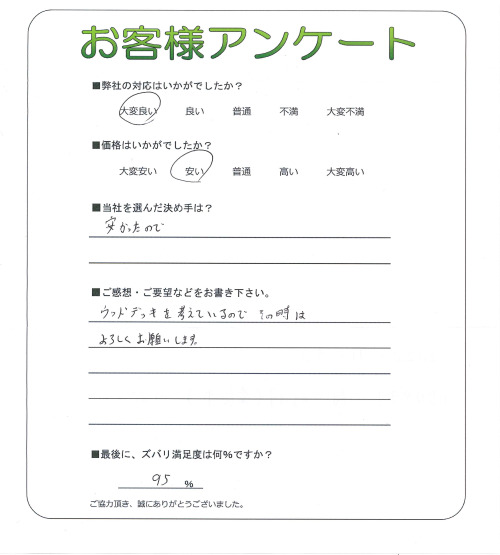 お客様アンケート
■弊社の対応はいかがでしたか?
大変良い 良い 普通 不満 大変不満
■価格はいかがでしたか?
大変安い 安い 普通 高い 大変高い
■当社を選んだ決め手は?
安かったので
■ご感想・ご要望などをお書き下さい。
ウッドデッキを考えているので その時は
よろしくお願いします
■最後に、ズバリ満足度は何%ですか?
95 %
ご協力頂き、誠にありがとうございました。